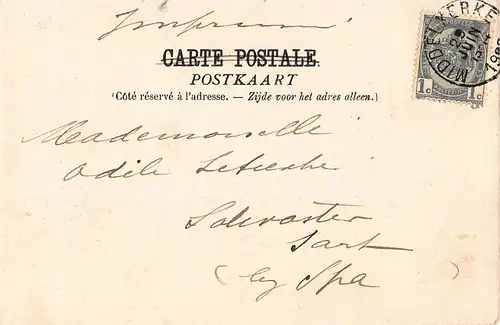 Imprimé
CARTE POSTALE.
POSTKAART
(Côté réservé à l'adresse. — Zijde voor het adres alleen.)
MIDDELKERKE
1c 1c
Mademoiselle
Odile
Solwaster
Sart
(lez Spa